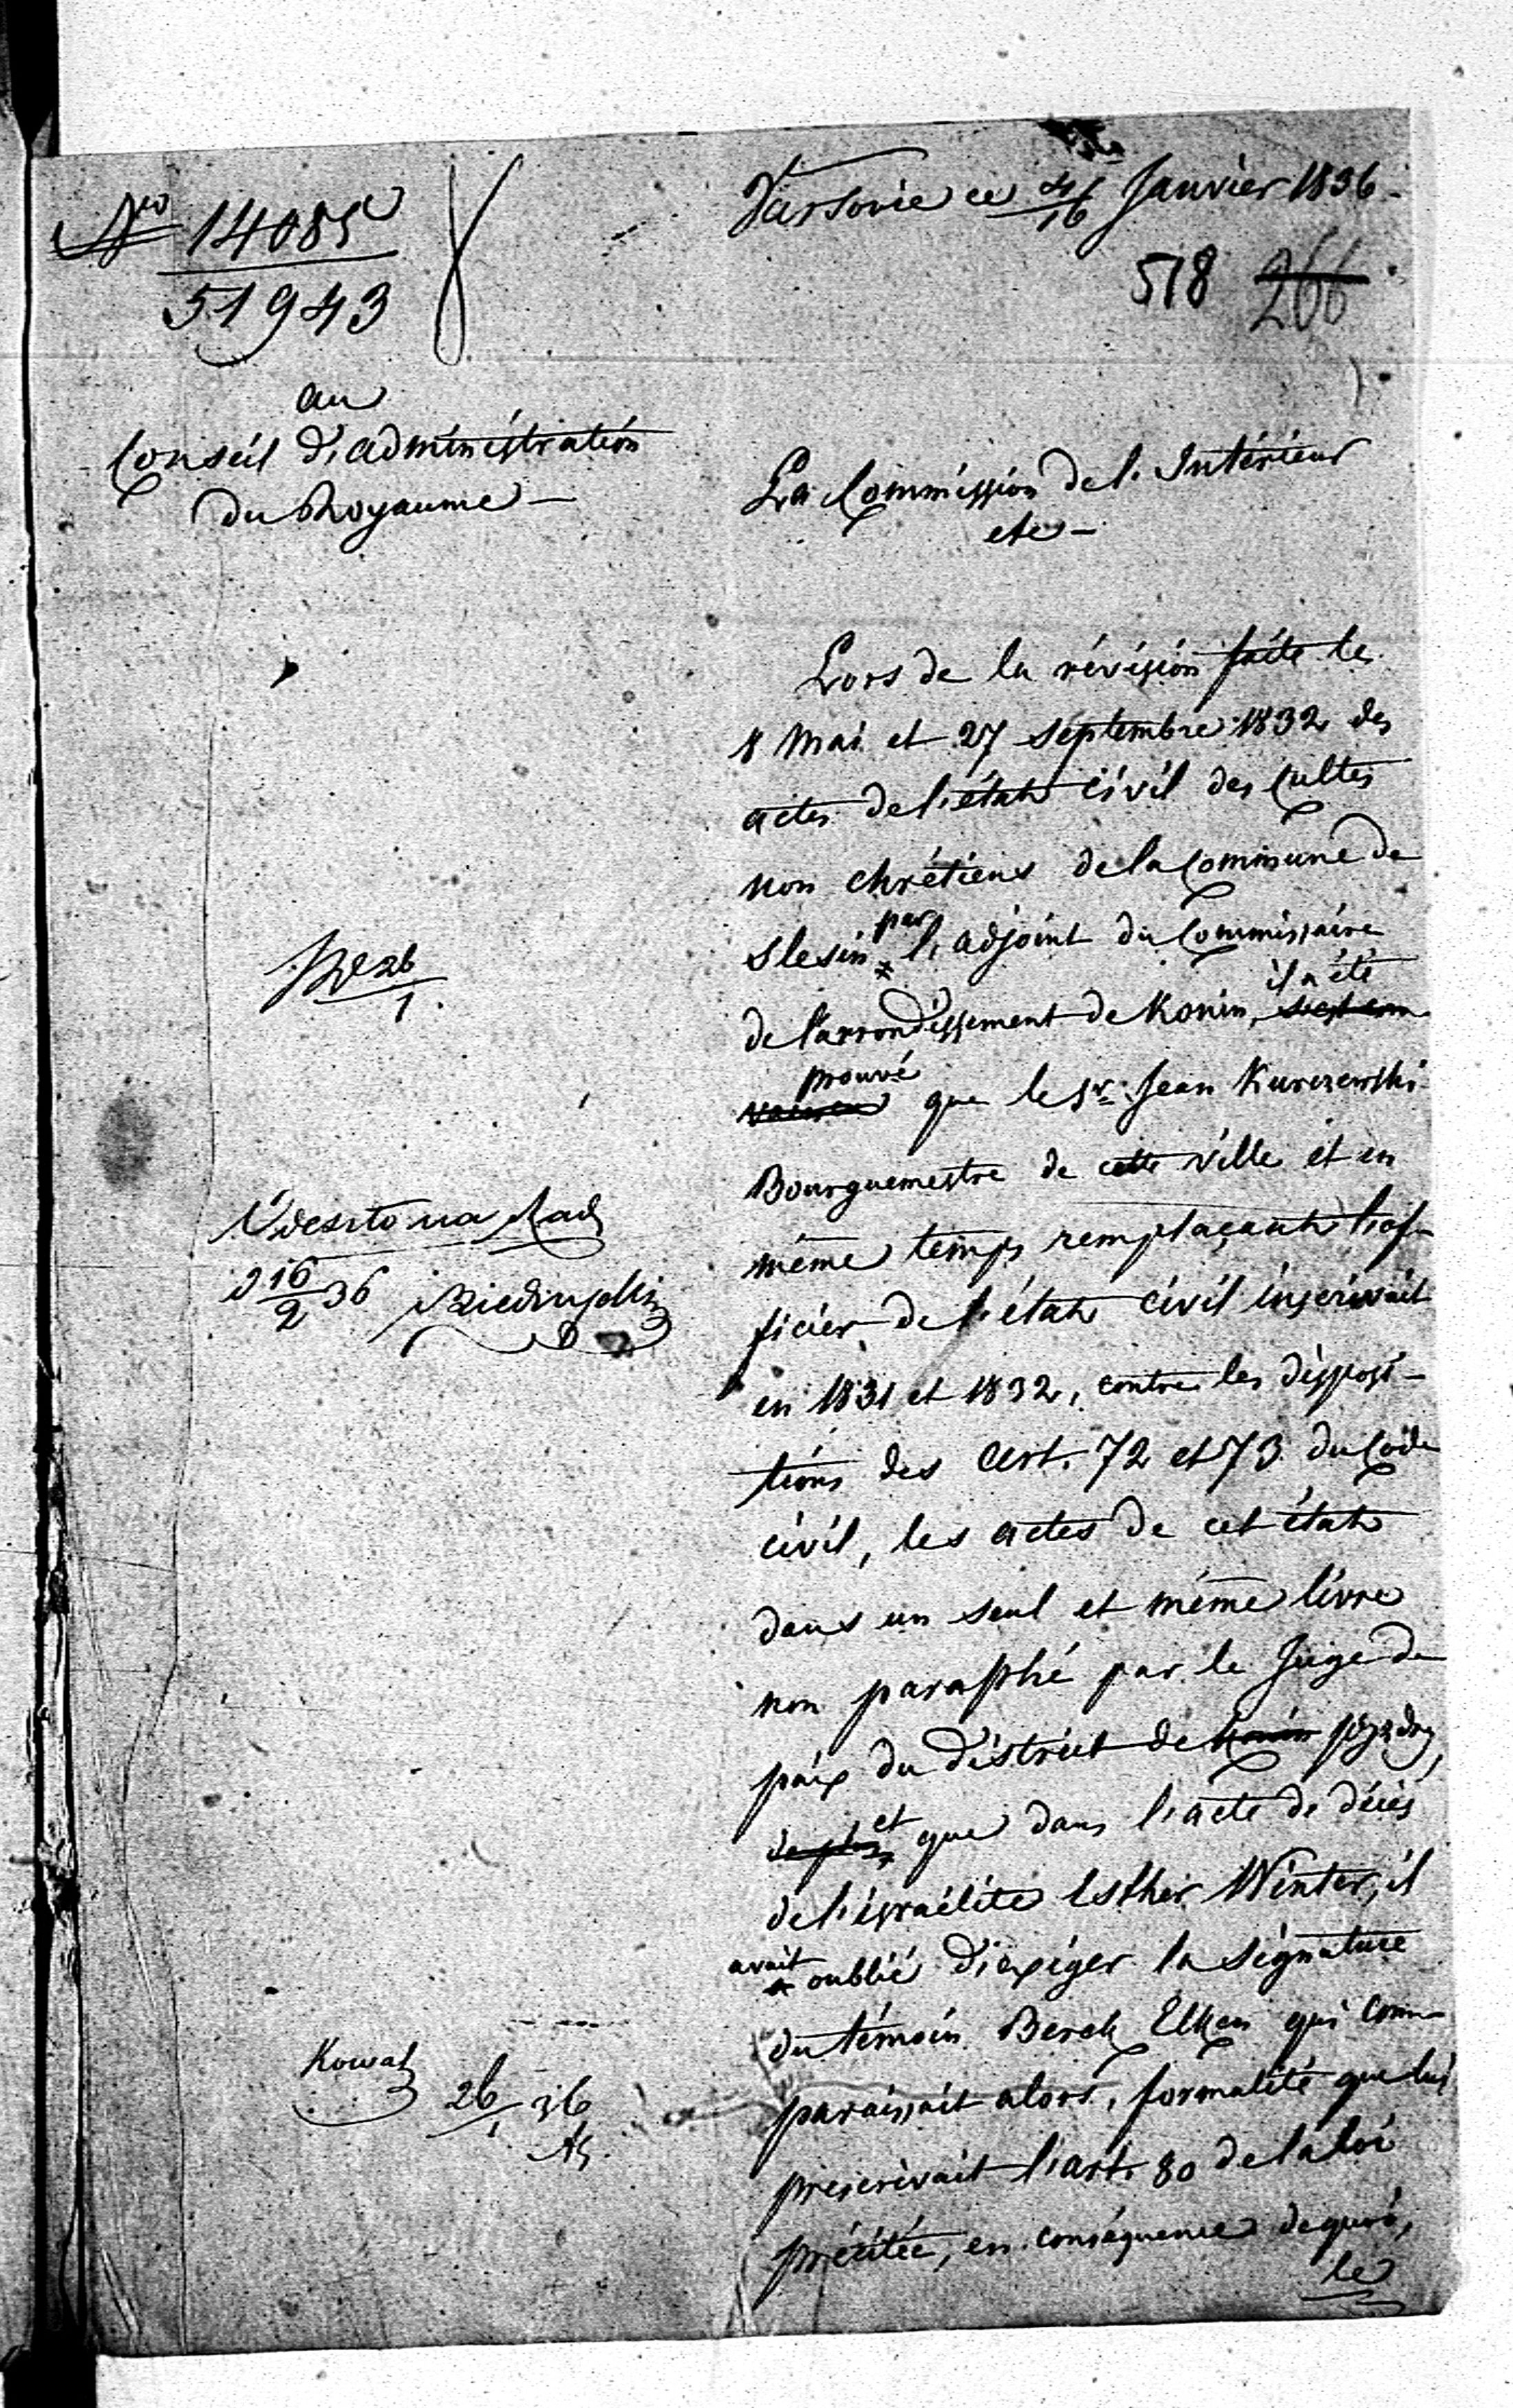 Varsovie ce 4/16 Janvier 1836.
No 14085
51943
518 266
au
Conseil d'administration
du Royaume —
La Commission de l'Intérieur
etc —
Lors de la révision faite les
8 Mai et 27 septembre 1832 des
actes de l'état civil des cultes
non chrétiens de la Commune de
Slesin par l'adjoint du Commissaire
de l'arrondissement de Konin, il a été
prouvé que le Sr. Jean Kurczewski
Bourguemestre de cette ville et en
même temps remplaçant l'of-
ficier de l'état civil inscrivait
en 1831 et 1832, contre les disposi-
tions des Art. 72 et 73 du Code
civil, les actes de cet état
dans un seul et même livre
non paraphé par le Juge de
paix du district de Konin Pyzdry,
de plus et que dans l'acte de décès
de l'israélite Esther Winter, il
avait oublié d'exiger la signature
du témoin Berek Elkan qui com-
paraissait alors, formalité que lui
prescrivait l'art. 80 de la loi
précitée, en conséquence de quoi,
le
26/1
16/2 36
Kowal
26/1 36